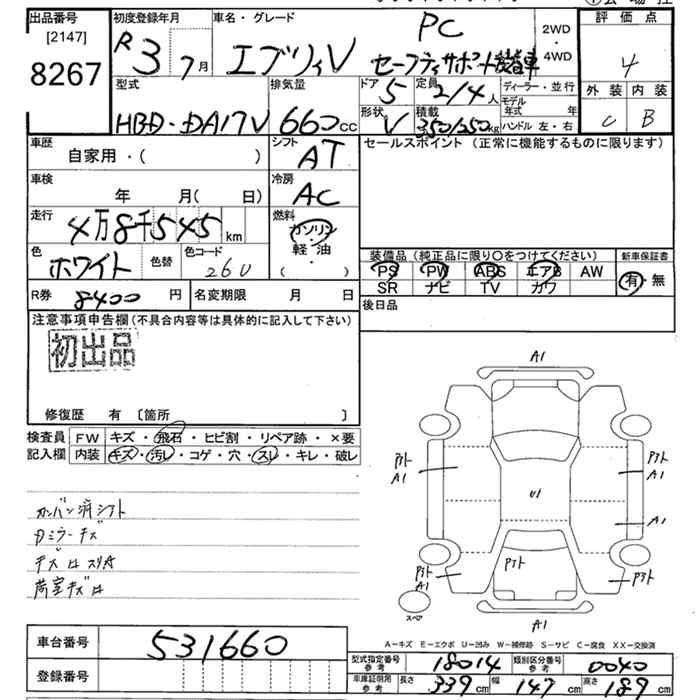 出品番号
[2147]
8267
初度登録年月
R3 7月
車名・グレード
エブリィV
PC
セーフティサポート装着車
2WD
・
4WD
評価点
4
外装 内装
C B
型式
HBD-DA17V
排気量
660cc
ドア
5
定員
2/4人
形状
V
積載
350/250kg
ディーラー・並行
モデル年式 年
ハンドル 左・右
車歴
自家用・( )
シフト
AT
車検
年 月( 日)
冷房
AC
走行
4万8千545km
燃料
ガソリン
軽・油
( )
色
ホワイト
色替
色コード
26U
R券 8400円
名変期限 月 日
セールスポイント (正常に機能するものに限ります)
装備品 (純正品に限り○をつけてください)
PS PW ABS エアB AW
SR ナビ TV カワ
新車保証書
有・無
後日品
注意事項申告欄(不具合内容等は具体的に記入して下さい)
初出品
修復歴 有 〔箇所 〕
検査員
記入欄
FW キズ・飛石・ヒビ割・リペア跡・×要
内装 キズ・汚レ・コゲ・穴・スレ・キレ・破レ
カンバン済シフト
荷室キズロ
A1
P外
A1
P外
A1
U1
A1
P外
P外
A1
P外
スペア
A1
A-キズ E-エクボ U-凹み W-補修跡 S-サビ C-腐食 XX-交換済
車台番号 531660
登録番号
型式指定番号
参考
18014
類別区分番号
参考
0040
車庫証明用
参考
長さ 339cm 幅 147cm 高さ 189cm